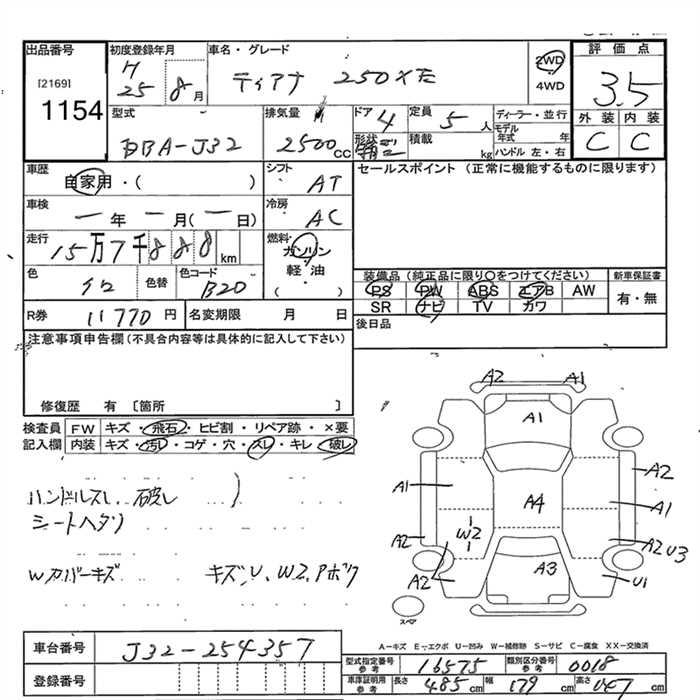 出品番号
[2169]
1154
初度登録年月
H
25 8月
車名・グレード
ティアナ 250XE
2WD
4WD
評価点
3.5
外装 内装
C C
型式
DBA-J32
排気量
2500cc
ドア
4
形状
定員
5人
積載
kg
ディーラー・並行
モデル年式 年
ハンドル 左・右
車歴
自家用・( )
シフト
AT
セールスポイント (正常に機能するものに限ります)
車検
一年 一月(一日)
冷房
AC
走行
15万7千888km
燃料
ガソリン
軽・油
( )
色
色替
色コード
B20
装備品 (純正品に限り○をつけてください)
PS PW ABS エアB AW
SR ナビ TV カワ
新車保証書
有・無
R券
11770円
名変期限 月 日
後日品
注意事項申告欄(不具合内容等は具体的に記入して下さい)
修復歴 有 [箇所 ]
検査員
記入欄
FW キズ・飛石・ヒビ割・リペア跡・×要
内装 キズ・汚れ・コゲ・穴・スレ・キレ・破レ
ハンドルスレ、破レ
シートヘタリ
Wカバーキズ
キズ、U、W2、Pボツ
A2 A1
A1
A2
A1 A4 A1
A2 W2 A2 U3
A2 A3 U1
スペア
A-キズ E-エクボ U-凹み W-補修跡 S-サビ C-腐食 XX-交換済
車台番号
J32-254357
登録番号
型式指定番号
参考
16575
類別区分番号
参考
0018
車庫証明用
参考
長さ 485cm
幅 179cm
高さ 147cm